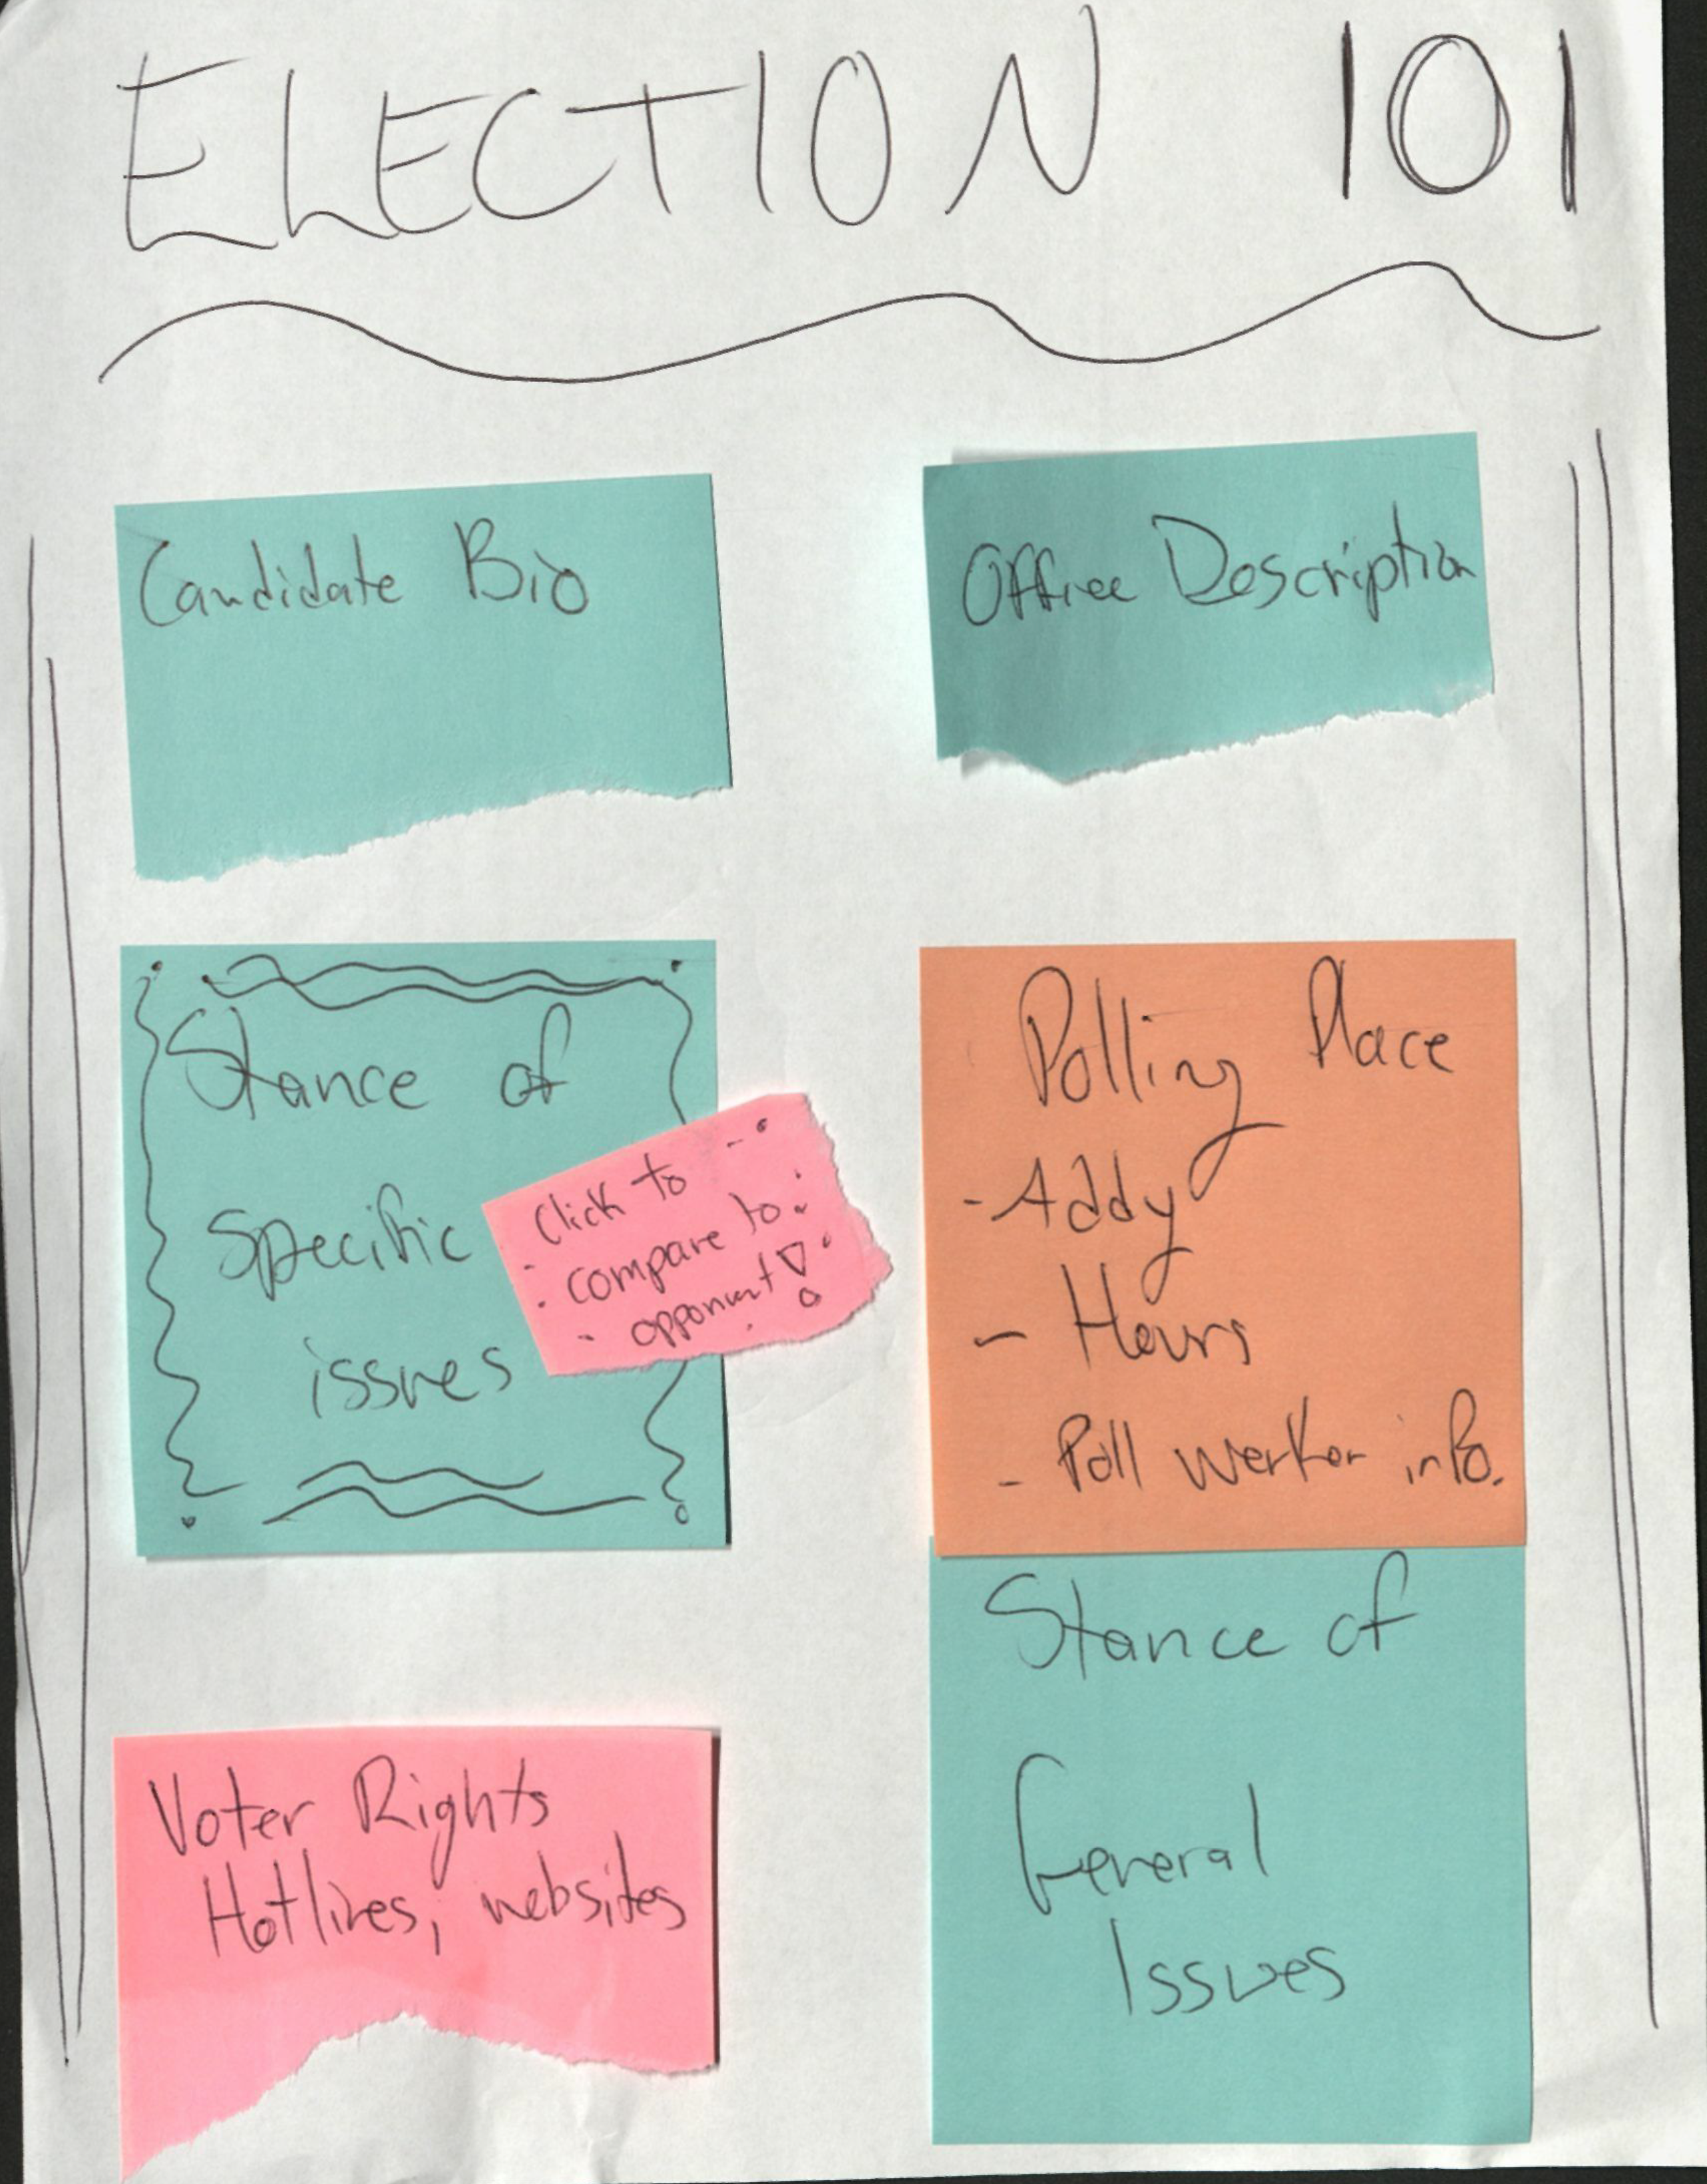 ELECTION 101
Candidate Bio
Office Description
Stance of
Specific
issues
Click to
compare to
opponent!
Polling Place
- Addy
- Hours
- Poll worker info.
Voter Rights
Hotlines, websites
Stance of
General
Issues